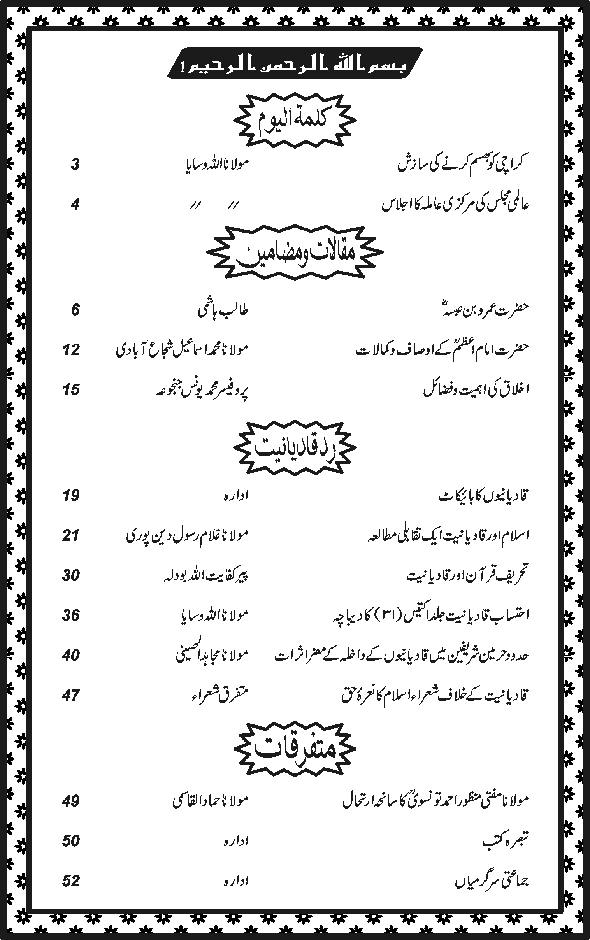 بسم الله الرحمن الرحيم!
کلمة الیوم
کراچی کو بھسم کرنے کی سازش مولانا اللہ وسایا 3
عالمی مجلس کی مرکزی عاملہ کا اجلاس 〃 〃 4
مقالات ومضامین
حضرت عمرو بن عبسہؓ طالب ہاشمی 6
حضرت امام اعظمؒ کے اوصاف وکمالات مولانا محمد اسماعیل شجاع آبادی 12
اخلاق کی اہمیت وفضائل پروفیسر محمد یونس جنجوعہ 15
رد قادیانیت
قادیانیوں کا بائیکاٹ ادارہ 19
اسلام اور قادیانیت ایک تقابلی مطالعہ مولانا غلام رسول دین پوری 21
تحریف قرآن اور قادیانیت پیر کفایت اللہ بودلہ 30
احتساب قادیانیت جلد اکتیس (۳۱) کا دیباچہ مولانا اللہ وسایا 36
حدود حرمین شریفین میں قادیانیوں کے داخلہ کے مضر اثرات مولانا مجاہد الحسینی 40
قادیانیت کے خلاف شعراء اسلام کا نعرۂ حق متفرق شعراء 47
متفرقات
مولانا مفتی منظور احمد تونسویؒ کا سانحہ ارتحال مولانا حماد القاسمی 49
تبصرہ کتب ادارہ 50
جماعتی سرگرمیاں ادارہ 52